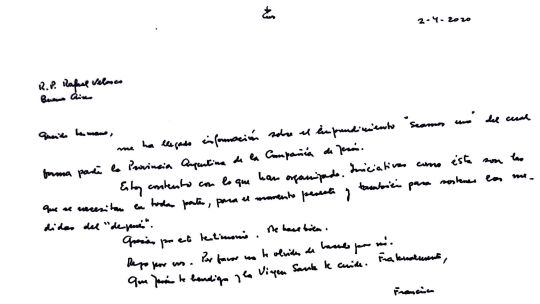 2-4-2020
R.P. Rafael Velasco
Buenos Aires
Querido hermano,
me ha llegado información sobre el Emprendimiento "Seamos uno" del cual
forma parte la Provincia Argentina de la Compañía de Jesús.
Estoy contento con lo que han organizado. Iniciativas como ésta son las
que se necesitan en toda parte, para el momento presente y también para sostener las me-
didas del "después".
Gracias por este testimonio. Me hace bien.
Rezo por vos. Por favor no te olvides de hacerlo por mí.
Que Jesús te bendiga y la Virgen Santa te cuide. Fraternalmente,
Francisco